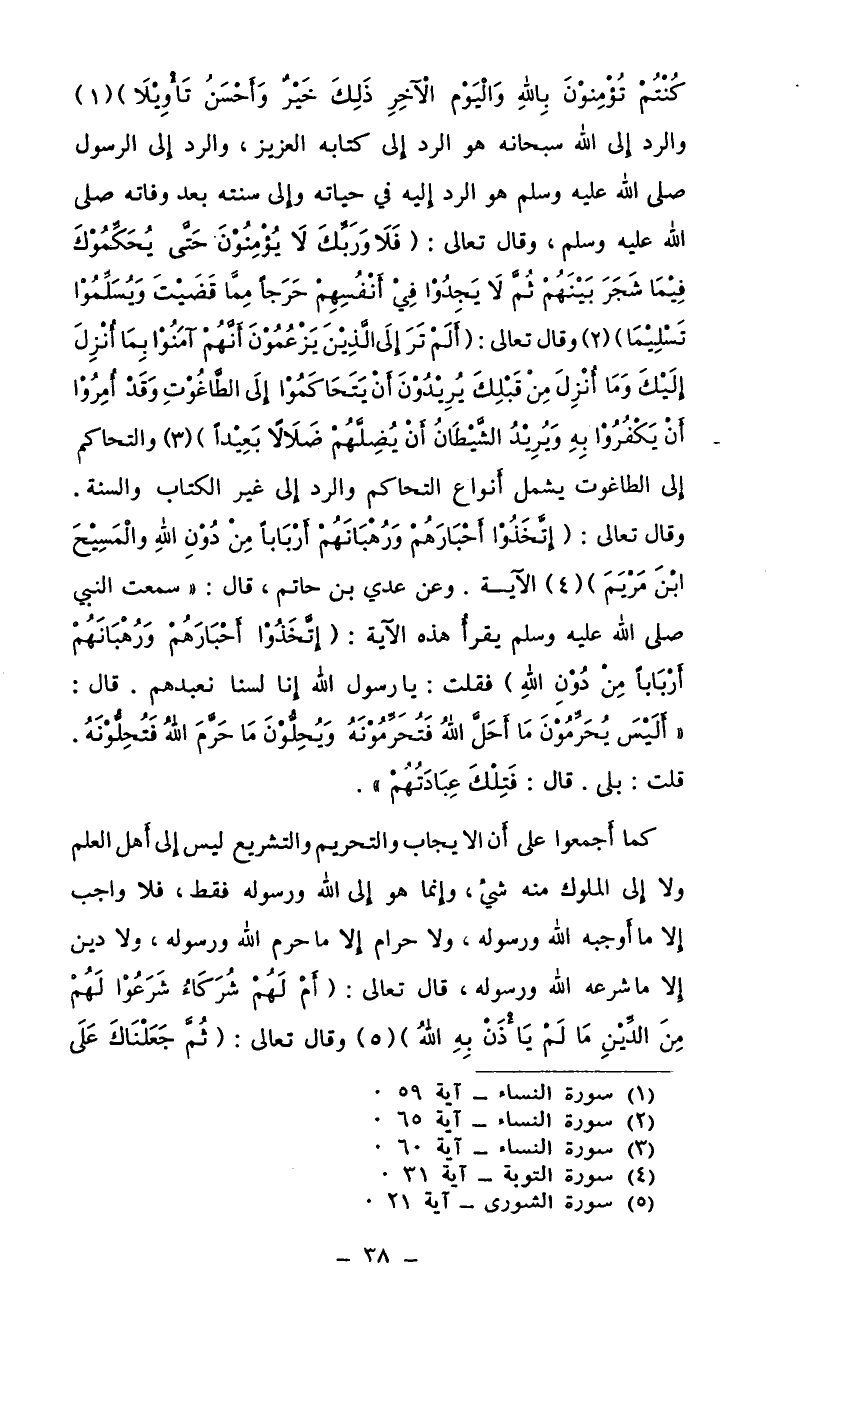 كُنْتُمْ تُؤْمِنُوْنَ بِاللهِ وَالْيَوْمِ الْآخِرِ ذَلِكَ خَيْرٌ وَأَحْسَنُ تَأْوِيْلَا )(١)
والرد إلى الله سبحانه هو الرد إلى كتابه العزيز ، والرد إلى الرسول
صلى الله عليه وسلم هو الرد إليه في حياته وإلى سنته بعد وفاته صلى
الله عليه وسلم ، وقال تعالى : ( فَلَا وَرَبِّكَ لَا يُؤْمِنُوْنَ حَتَّى يُحَكِّمُوْكَ
فِيْمَا شَجَرَ بَيْنَهُمْ ثُمَّ لَا يَجِدُوْا فِيْ أَنْفُسِهِمْ حَرَجاً مِمَّا قَضَيْتَ وَيُسَلِّمُوْا
تَسْلِيْمَا )(٢) وقال تعالى : ( أَلَمْ تَرَ إِلَى الَّذِيْنَ يَزْعُمُوْنَ أَنَّهُمْ آمَنُوْا بِمَا أُنْزِلَ
إِلَيْكَ وَمَا أُنْزِلَ مِنْ قَبْلِكَ يُرِيْدُوْنَ أَنْ يَتَحَاكَمُوْا إِلَى الطَّاغُوْتِ وَقَدْ أُمِرُوْا
أَنْ يَكْفُرُوْا بِهِ وَيُرِيْدُ الشَّيْطَانُ أَنْ يُضِلَّهُمْ ضَلَالًا بَعِيْداً )(٣) والتحاكم
إلى الطاغوت يشمل أنواع التحاكم والرد إلى غير الكتاب والسنة .
وقال تعالى : ( إِتَّخَذُوْا أَحْبَارَهُمْ وَرُهْبَانَهُمْ أَرْبَاباً مِنْ دُوْنِ اللهِ والْمَسِيْحَ
ابْنَ مَرْيَمَ )(٤) الآيــة . وعن عدي بن حاتم ، قال : « سمعت النبي
صلى الله عليه وسلم يقرأ هذه الآية : ( إِتَّخَذُوْا أَحْبَارَهُمْ وَرُهْبَانَهُمْ
أَرْبَاباً مِنْ دُوْنِ اللهِ ) فقلت : يا رسول الله إنا لسنا نعبدهم . قال :
« أَلَيْسَ يُحَرِّمُوْنَ مَا أَحَلَّ اللهُ فَتُحَرِّمُوْنَهُ وَيُحِلُّوْنَ مَا حَرَّمَ اللهُ فَتُحِلُّوْنَهُ .
قلت : بلى . قال : فَتِلْكَ عِبَادَتُهُمْ » .
كما أجمعوا على أن الايجاب والتحريم والتشريع ليس إلى أهل العلم
ولا إلى الملوك منه شيْ ، وإنما هو إلى الله ورسوله فقط ، فلا واجب
إلا ما أوجبه الله ورسوله ، ولا حرام إلا ما حرم الله ورسوله ، ولا دين
إلا ما شرعه الله ورسوله ، قال تعالى : ( أَمْ لَهُمْ شُرَكَاءُ شَرَعُوْا لَهُمْ
مِنَ الدِّيْنِ مَا لَمْ يَأْذَنْ بِهِ اللهُ )(٥) وقال تعالى : ( ثُمَّ جَعَلْنَاكَ عَلَى
(١) سورة النساء – آية ٥٩ ٠
(٢) سورة النساء – آية ٦٥ ٠
(٣) سورة النساء – آية ٦٠ ٠
(٤) سورة التوبة – آية ٣١ ٠
(٥) سورة الشورى – آية ٢١ ٠
– ٣٨ –